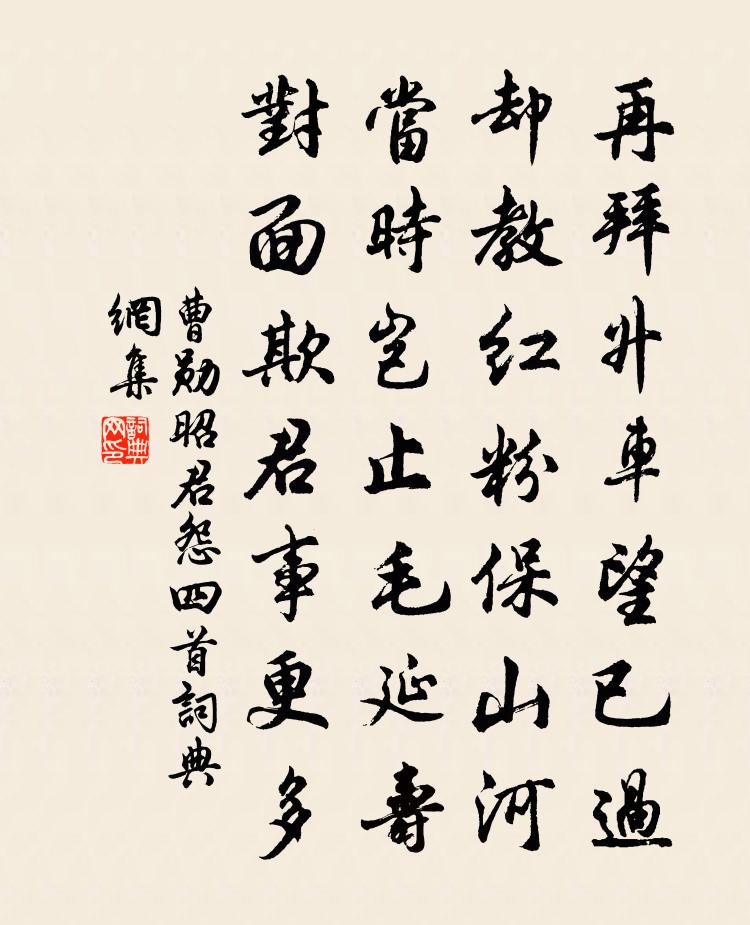 再拜升車望已過
却教紅粉保山河
當時豈止毛延壽
對面欺君事更多
曹勛昭君怨四首詞典
網集
詞典
网印